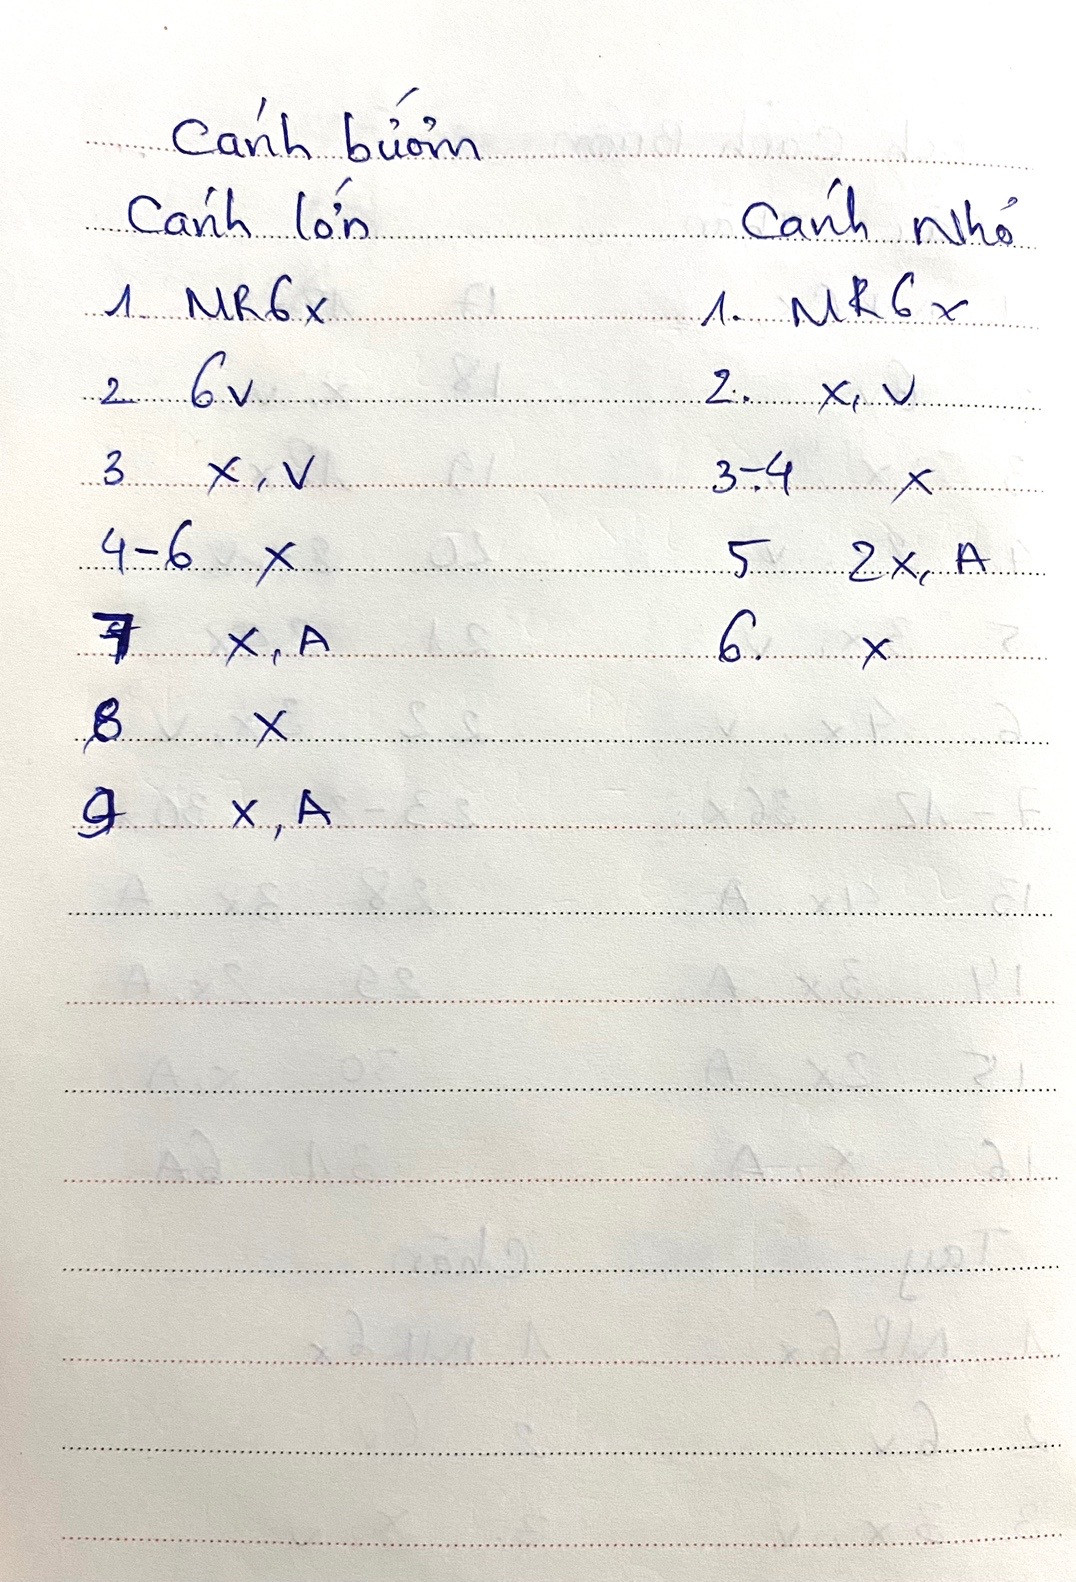 Cánh bướm
Cánh lớn Cánh Nhỏ
1. MR6x 1. MR6x
2. 6v 2. x, v
3 x, v 3-4 x
4-6 x 5 2x, A
7 x, A 6. x
8 x
9 x, A